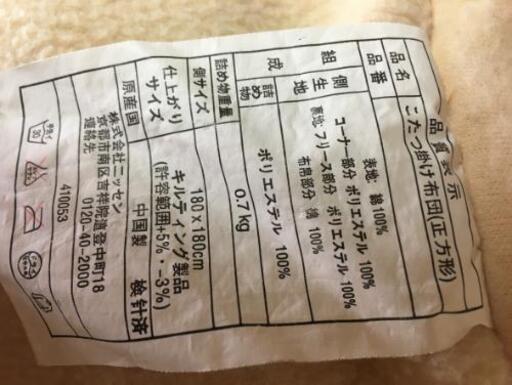 品質表示
品名 こたつ掛け布団(正方形)
品番
組成 側生地 表地: 綿100%
コーナー部分 ポリエステル 100%
裏地: フリース部分 ポリエステル 100%
布帛部分 綿 100%
詰め物 ポリエステル 100%
詰め物重量 0.7kg
側サイズ
仕上がりサイズ 180×180cm
キルティング製品
(許容範囲+5%・-3%)
原産国 中国製 検針済
株式会社ニッセン
京都市南区吉祥院這登中町18
連絡先 0120-40-2000
410053